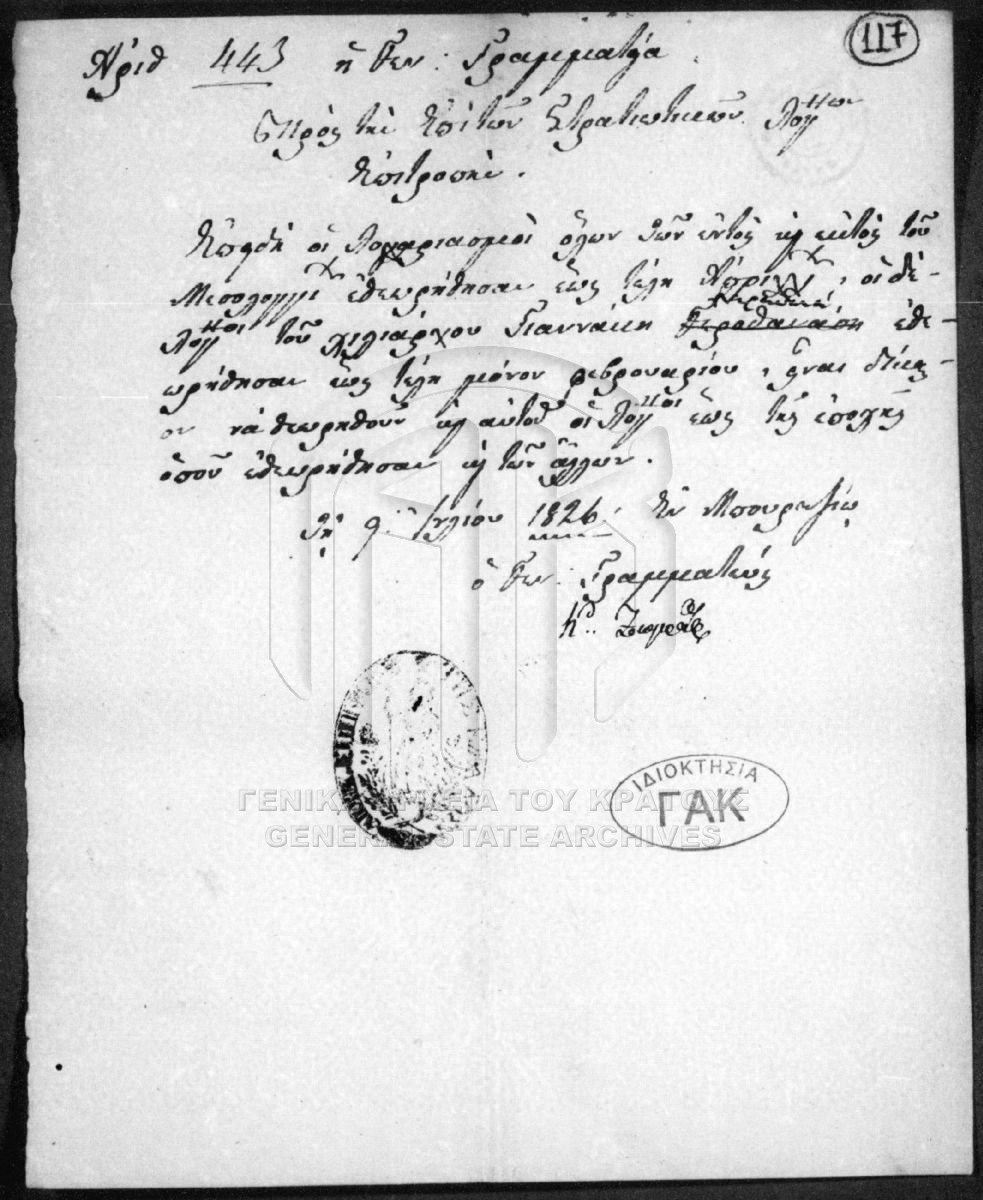 117
Ἀριθ 443 ἡ Γεν: Γραμματεία
Πρὸς τὴν Ἐπὶ τῶν Στρατιωτικῶν Λογ/μων
Ἐπιτροπήν.
Ἐπειδὴ οἱ Λογαριασμοὶ ὅλων τῶν ἐντὸς καὶ ἐκτὸς τοῦ
Μεσολογγί ἐθεωρήθησαν ἕως τέλη Ἀπριλλί, οἱ δὲ
Λογ/μοι τοῦ χιλιάρχου Γιαννάκη ἐθε-
ωρήθησαν ἕως τέλη μόνον φεβρουαρίου, εἶναι δίκαι-
ον νὰ θεωρηθοῦν καὶ αὐτοῦ οἱ Λογ/μοι ἕως τῆς ἐποχῆς
ὁποῦ ἐθεωρήθησαν καὶ τῶν ἄλλων.
τῇ 9 Ἰουλίου 1826. Ἐν Μπουρτζίῳ
ὁ Γεν: Γραμματεύς
ΙΔΙΟΚΤΗΣΙΑ
ΓΑΚ
ΓΕΝΙΚΑ ΑΡΧΕΙΑ ΤΟΥ ΚΡΑΤΟΥΣ
GENERAL STATE ARCHIVES